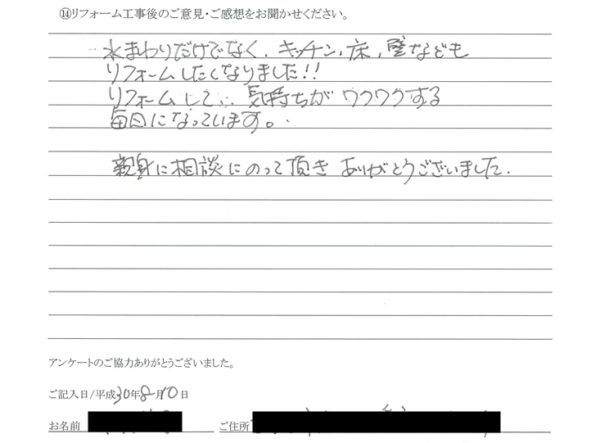 ⑭リフォーム工事後のご意見・ご感想をお聞かせください。
水まわりだけでなく、キッチン、床、壁なども
リフォームしたくなりました!!
リフォームして∴気持ちがワクワクする
毎日になっています。
親身に相談にのって頂きありがとうございました.
アンケートのご協力ありがとうございました。
ご記入日/平成30年8月10日
お名前 ご住所